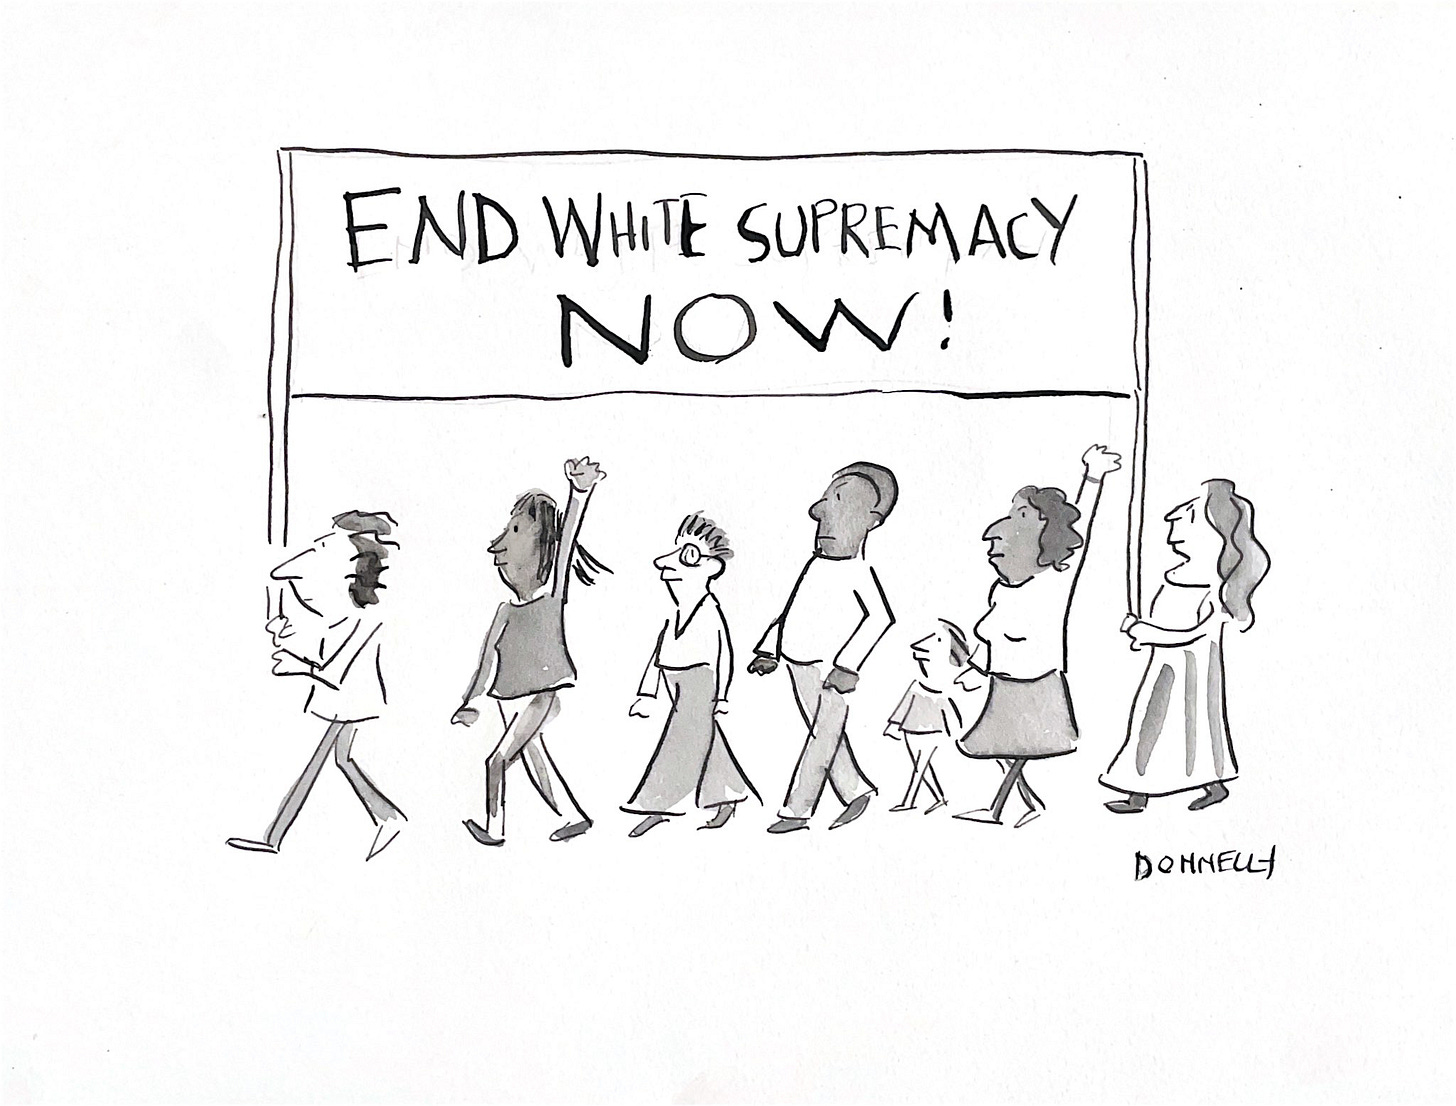 END WHITE SUPREMACY
NOW!
DONNELLY